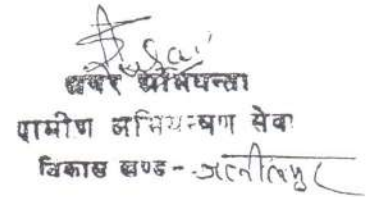 अवर अभियन्ता
ग्रामीण अभियन्त्रण सेवा
विकास खण्ड -